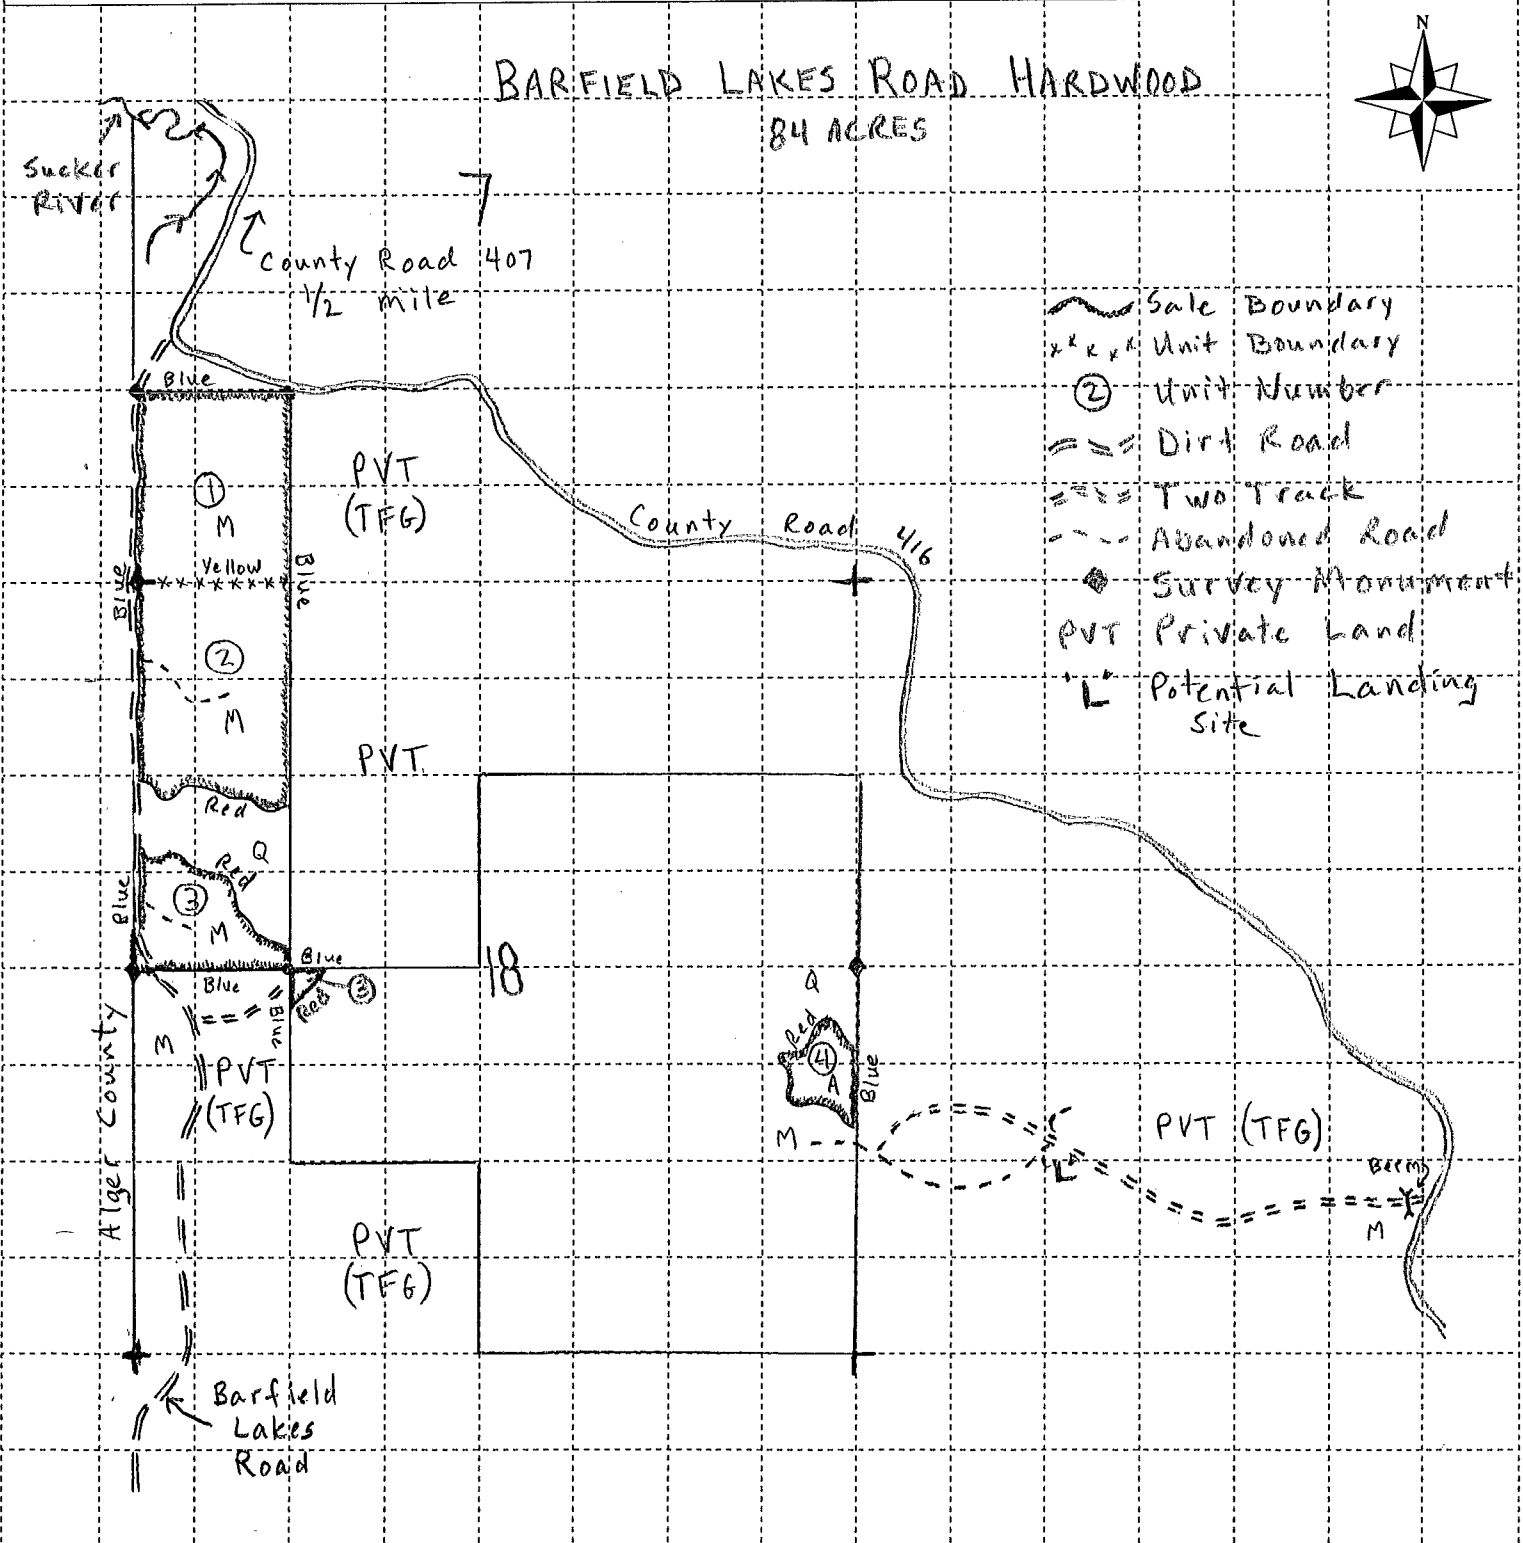 N
BARFIELD LAKES ROAD HARDWOOD
84 ACRES
Sucker
River
7
County Road 407
1/2 mile
Sale Boundary
Unit Boundary
② Unit Number
Dirt Road
Two Track
Abandoned Road
Survey Monument
PVT Private Land
"L" Potential Landing
Site
Blue
① 
M
PVT
(TFG)
County Road 416
Yellow
Blue
Blue
②
M
PVT
Red
Q
Red
③
M
Blue
Blue
Blue
Blue
Red
③
18
Q
Red
④
A
Blue
M
PVT
(TFG)
Alger County
M
"L"
PVT (TFG)
Berm
M
PVT
(TFG)
Barfield
Lakes
Road